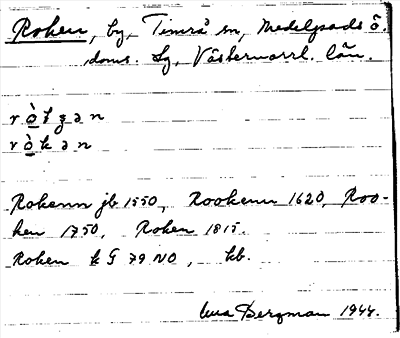 Roken, by, Timrå sn, Medelpads ö.
doms. sg, Västernorrl. län.
rò̲kən
Rokenn jb 1550, Rookenn 1620, Roo-
ken 1750, Roken 1815.
Roken k G 79 NO, kb.
Bergman 1944.